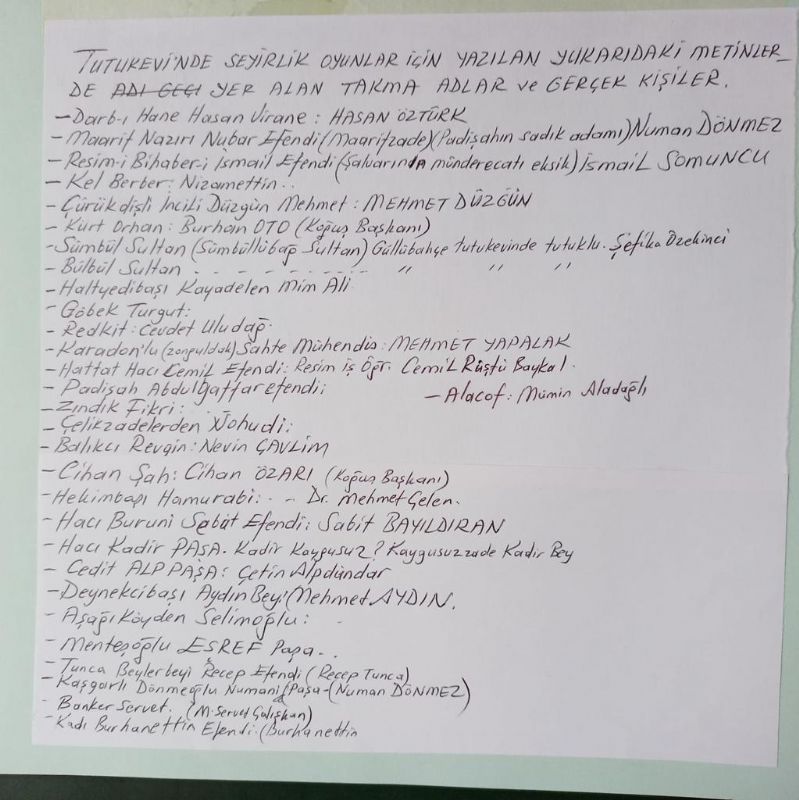 TUTUKEVİ'NDE SEYİRLİK OYUNLAR İÇİN YAZILAN YUKARIDAKİ METİNLER_
DE ADI GEÇİ YER ALAN TAKMA ADLAR ve GERÇEK KİŞİLER.
- Darb-ı Hane Hasan Virane : HASAN ÖZTÜRK
- Maarif Nazırı Nubar Efendi (Maarifzade) (Padişahın sadık adamı) Numan DÖNMEZ
- Resim-i Bihaber-i İsmail Efendi (Şalvarında münderecatı eksik) İsmail SOMUNCU
- Kel Berber: Nizamettin..
- Çürük dişli İncili Düzgün Mehmet : MEHMET DÜZGÜN
- Kürt Orhan: Burhan OTO (Koğuş Başkanı)
- Sümbül Sultan (Sümbüllübağ Sultan) Güllübahçe tutukevinde tutuklu. Şefika Özekinci
- Bülbül Sultan - - - - - - - - - - " " "
- Haltyedibaşı Kayadelen Mim Ali
- Göbek Turgut:
- Redkit: Cevdet Uludağ.
- Karadon'lu (Zonguldak) Sahte Mühendis: MEHMET YAPALAK
- Hattat Hacı Cemil Efendi: Resim iş Öğr. Cemil Rüştü Baykal.
- Padişah Abdulgaffar efendi: - Alacof: Mümin Aladağlı
- Zındık Fikri:
- Çelikzadelerden Nohudi:
- Balıkcı Revgin: Nevin ÇAVLİM
- Cihan Şah: Cihan ÖZARI (Koğuş Başkanı)
- Hekimbaşı Hamurabi: . - Dr. Mehmet Gelen.
- Hacı Buruni Sebat Efendi: Sabit BAYILDIRAN
- Hacı Kadir PAŞA. Kadir Kaygusuz? Kaygusuzzade Kadir Bey
- Cedit ALP PAŞA: Çetin Alpdündar
- Deynekcibaşı Aydın Bey: (Mehmet AYDIN.
- Aşağı Köyden Selimoğlu: -
- Menteşoğlu EŞREF Paşa..
- Tunca Beylerbeyi Recep Efendi (Recep Tunca)
- Kaşgarlı Dönmeoğlu Numani Paşa - (Numan DÖNMEZ)
- Banker Servet. (M. Servet Çalışkan)
- Kadı Burhanettin Efendi. (Burhanettin